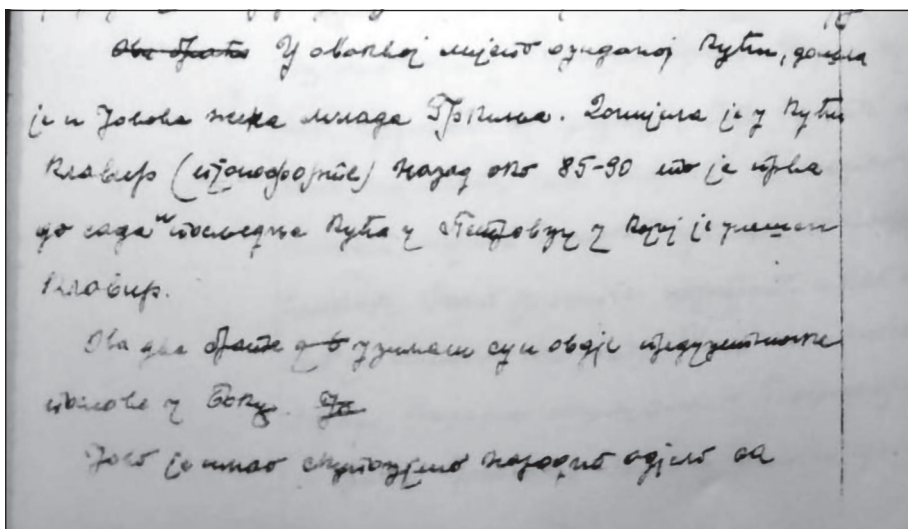 Ова брата У оваквој мјесто озиданој кући, дошла
је и Јовова жена млада Гркиња. Донијела је у кућу
клавир (пјанофорте) назад око 85-90 што је прва
до сада и последња кућа у Паштровућу у којој је унешен
клавир.
Ова два брата узимаш су и овдје предузимачке
послове у Боку.
Јово је имао скупоцјено народно одјело са